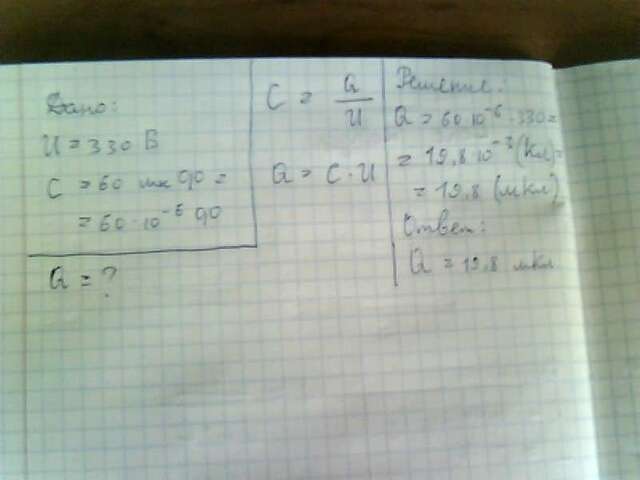 Дано:
U = 330 В
C = 60 мк Ф =
= 60 · 10⁻⁶ Ф
Q = ?
C = Q / U
Q = C · U
Решение:
Q = 60 10⁻⁶ · 330 =
= 19,8 10⁻³ (Кл) =
= 19,8 (мкл)
Ответ:
Q = 19,8 мкл